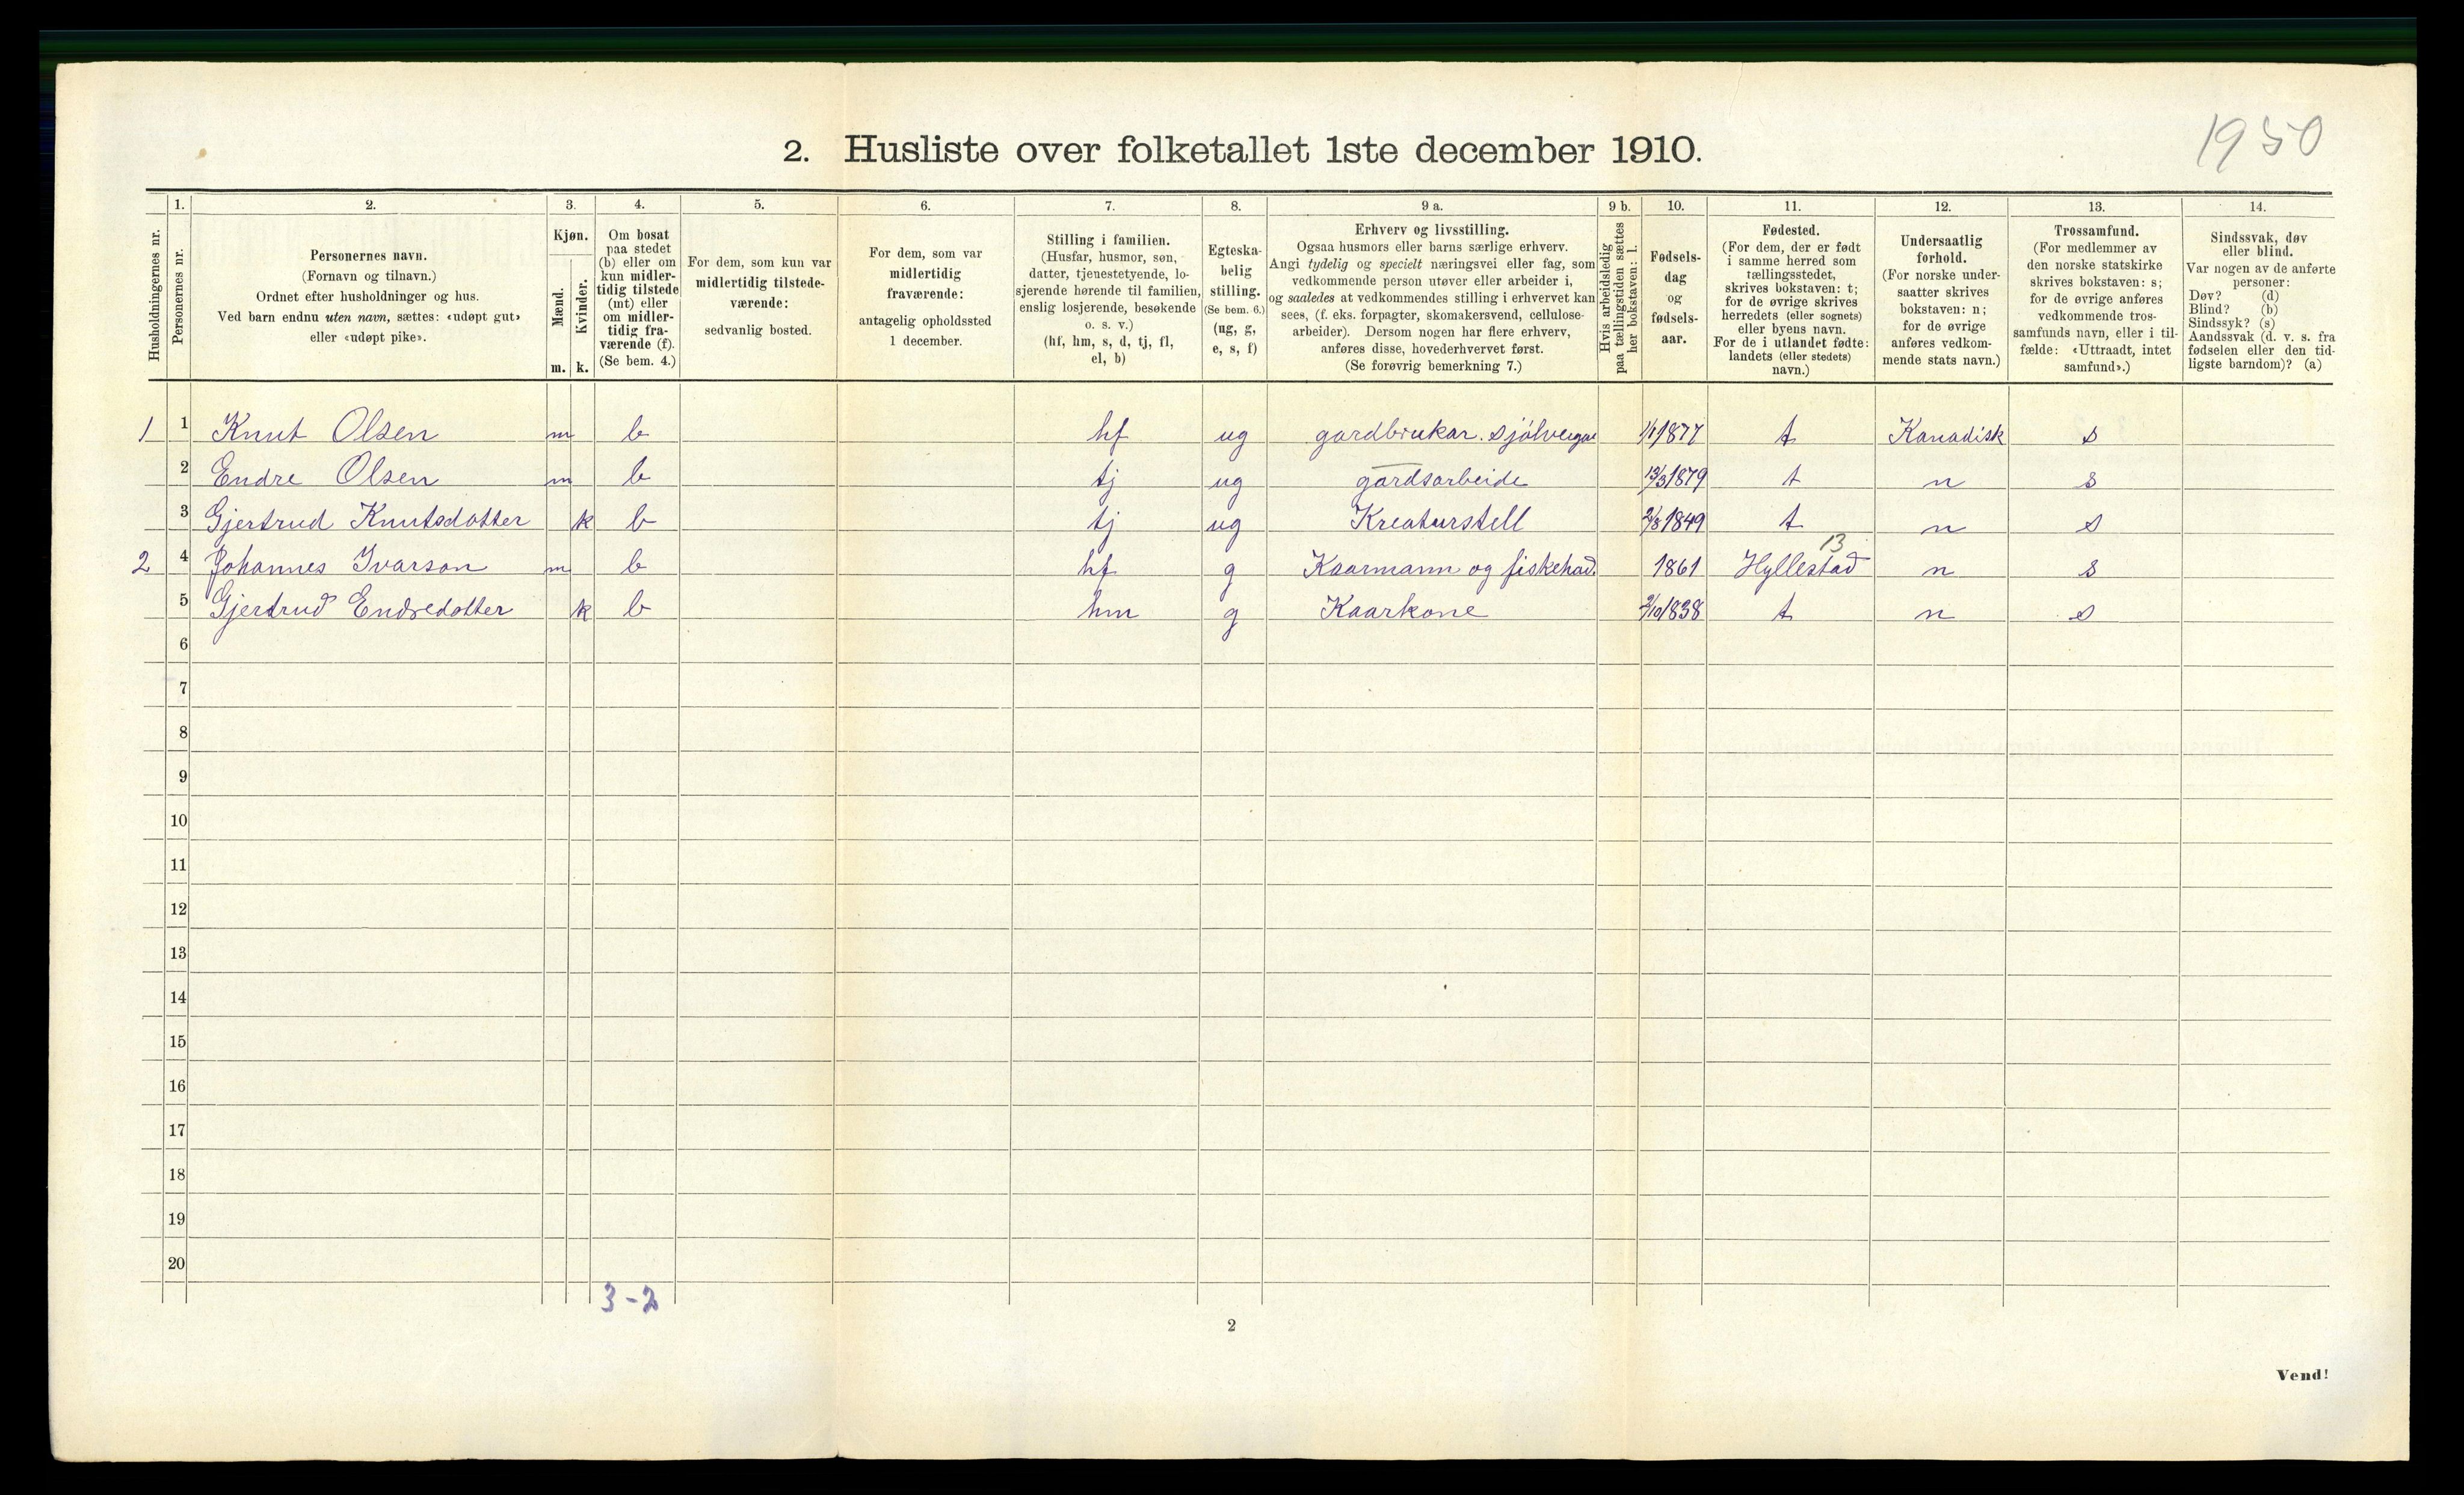 1950
2. Husliste over folketallet 1ste december 1910.
Husholdningernes nr.
1.
Personernes nr.
2.
Personernes navn.
(Fornavn og tilnavn.)
Ordnet efter husholdninger og hus.
Ved barn endnu uten navn, sættes: «udøpt gut»
eller «udøpt pike».
3.
Kjøn.
Mænd.
Kvinder.
m. k.
4.
Om bosat
paa stedet
(b) eller om
kun midler-
tidig tilstede
(mt) eller
om midler-
tidig fra-
værende (f).
(Se bem. 4.)
5.
For dem, som kun var
midlertidig tilstede-
værende:
sedvanlig bosted.
6.
For dem, som var
midlertidig
fraværende:
antagelig opholdssted
1 december.
7.
Stilling i familien.
(Husfar, husmor, søn,
datter, tjenestetyende, lo-
sjerende hørende til familien,
enslig losjerende, besøkende
o. s. v.)
(hf, hm, s, d, tj, fl,
el, b)
8.
Egteska-
belig
stilling.
(Se bem. 6.)
(ug, g,
e, s, f)
9 a.
Erhverv og livsstilling.
Ogsaa husmors eller barns særlige erhverv.
Angi tydelig og specielt næringsvei eller fag, som
vedkommende person utøver eller arbeider i,
og saaledes at vedkommendes stilling i erhvervet kan
sees, (f. eks. forpagter, skomakersvend, cellulose-
arbeider). Dersom nogen har flere erhverv,
anføres disse, hovederhvervet først.
(Se forøvrig bemerkning 7.)
9 b.
Hvis arbeidsledig
paa tællingstiden sættes
her bokstaven: l.
10.
Fødsels-
dag
og
fødsels-
aar.
11.
Fødested.
(For dem, der er født
i samme herred som
tællingsstedet,
skrives bokstaven: t;
for de øvrige skrives
herredets (eller sognets)
eller byens navn.
For de i utlandet fødte:
landets (eller stedets)
navn.)
12.
Undersaatlig
forhold.
(For norske under-
saatter skrives
bokstaven: n;
for de øvrige
anføres vedkom-
mende stats navn.)
13.
Trossamfund.
(For medlemmer av
den norske statskirke
skrives bokstaven: s;
for de øvrige anføres
vedkommende tros-
samfunds navn, eller i til-
fælde: «Uttraadt, intet
samfund».)
14.
Sindssvak, døv
eller blind.
Var nogen av de anførte
personer:
Døv? (d)
Blind? (b)
Sindssyk? (s)
Aandssvak (d. v. s. fra
fødselen eller den tid-
ligste barndom)? (a)
1 1 Knut Olsen m b hf ug gardbrukar. sjølveigar 1/1 1877 t Kanadisk s
2 Endre Olsen m b tj ug gardsarbeide 13/3 1879 t n s
3 Gjertrud Knutsdotter k b tj ug Kreaturstell 2/8 1849 t n s
13
2 4 Johannes Ivarson m b hf g Kaarmann og fiskehad. 1861 Hyllestad n s
5 Gjertrud Endredotter k b hm g Kaarkone 2/10 1838 t n s
6
7
8
9
10
11
12
13
14
15
16
17
18
19
20
3-2
2
Vend!